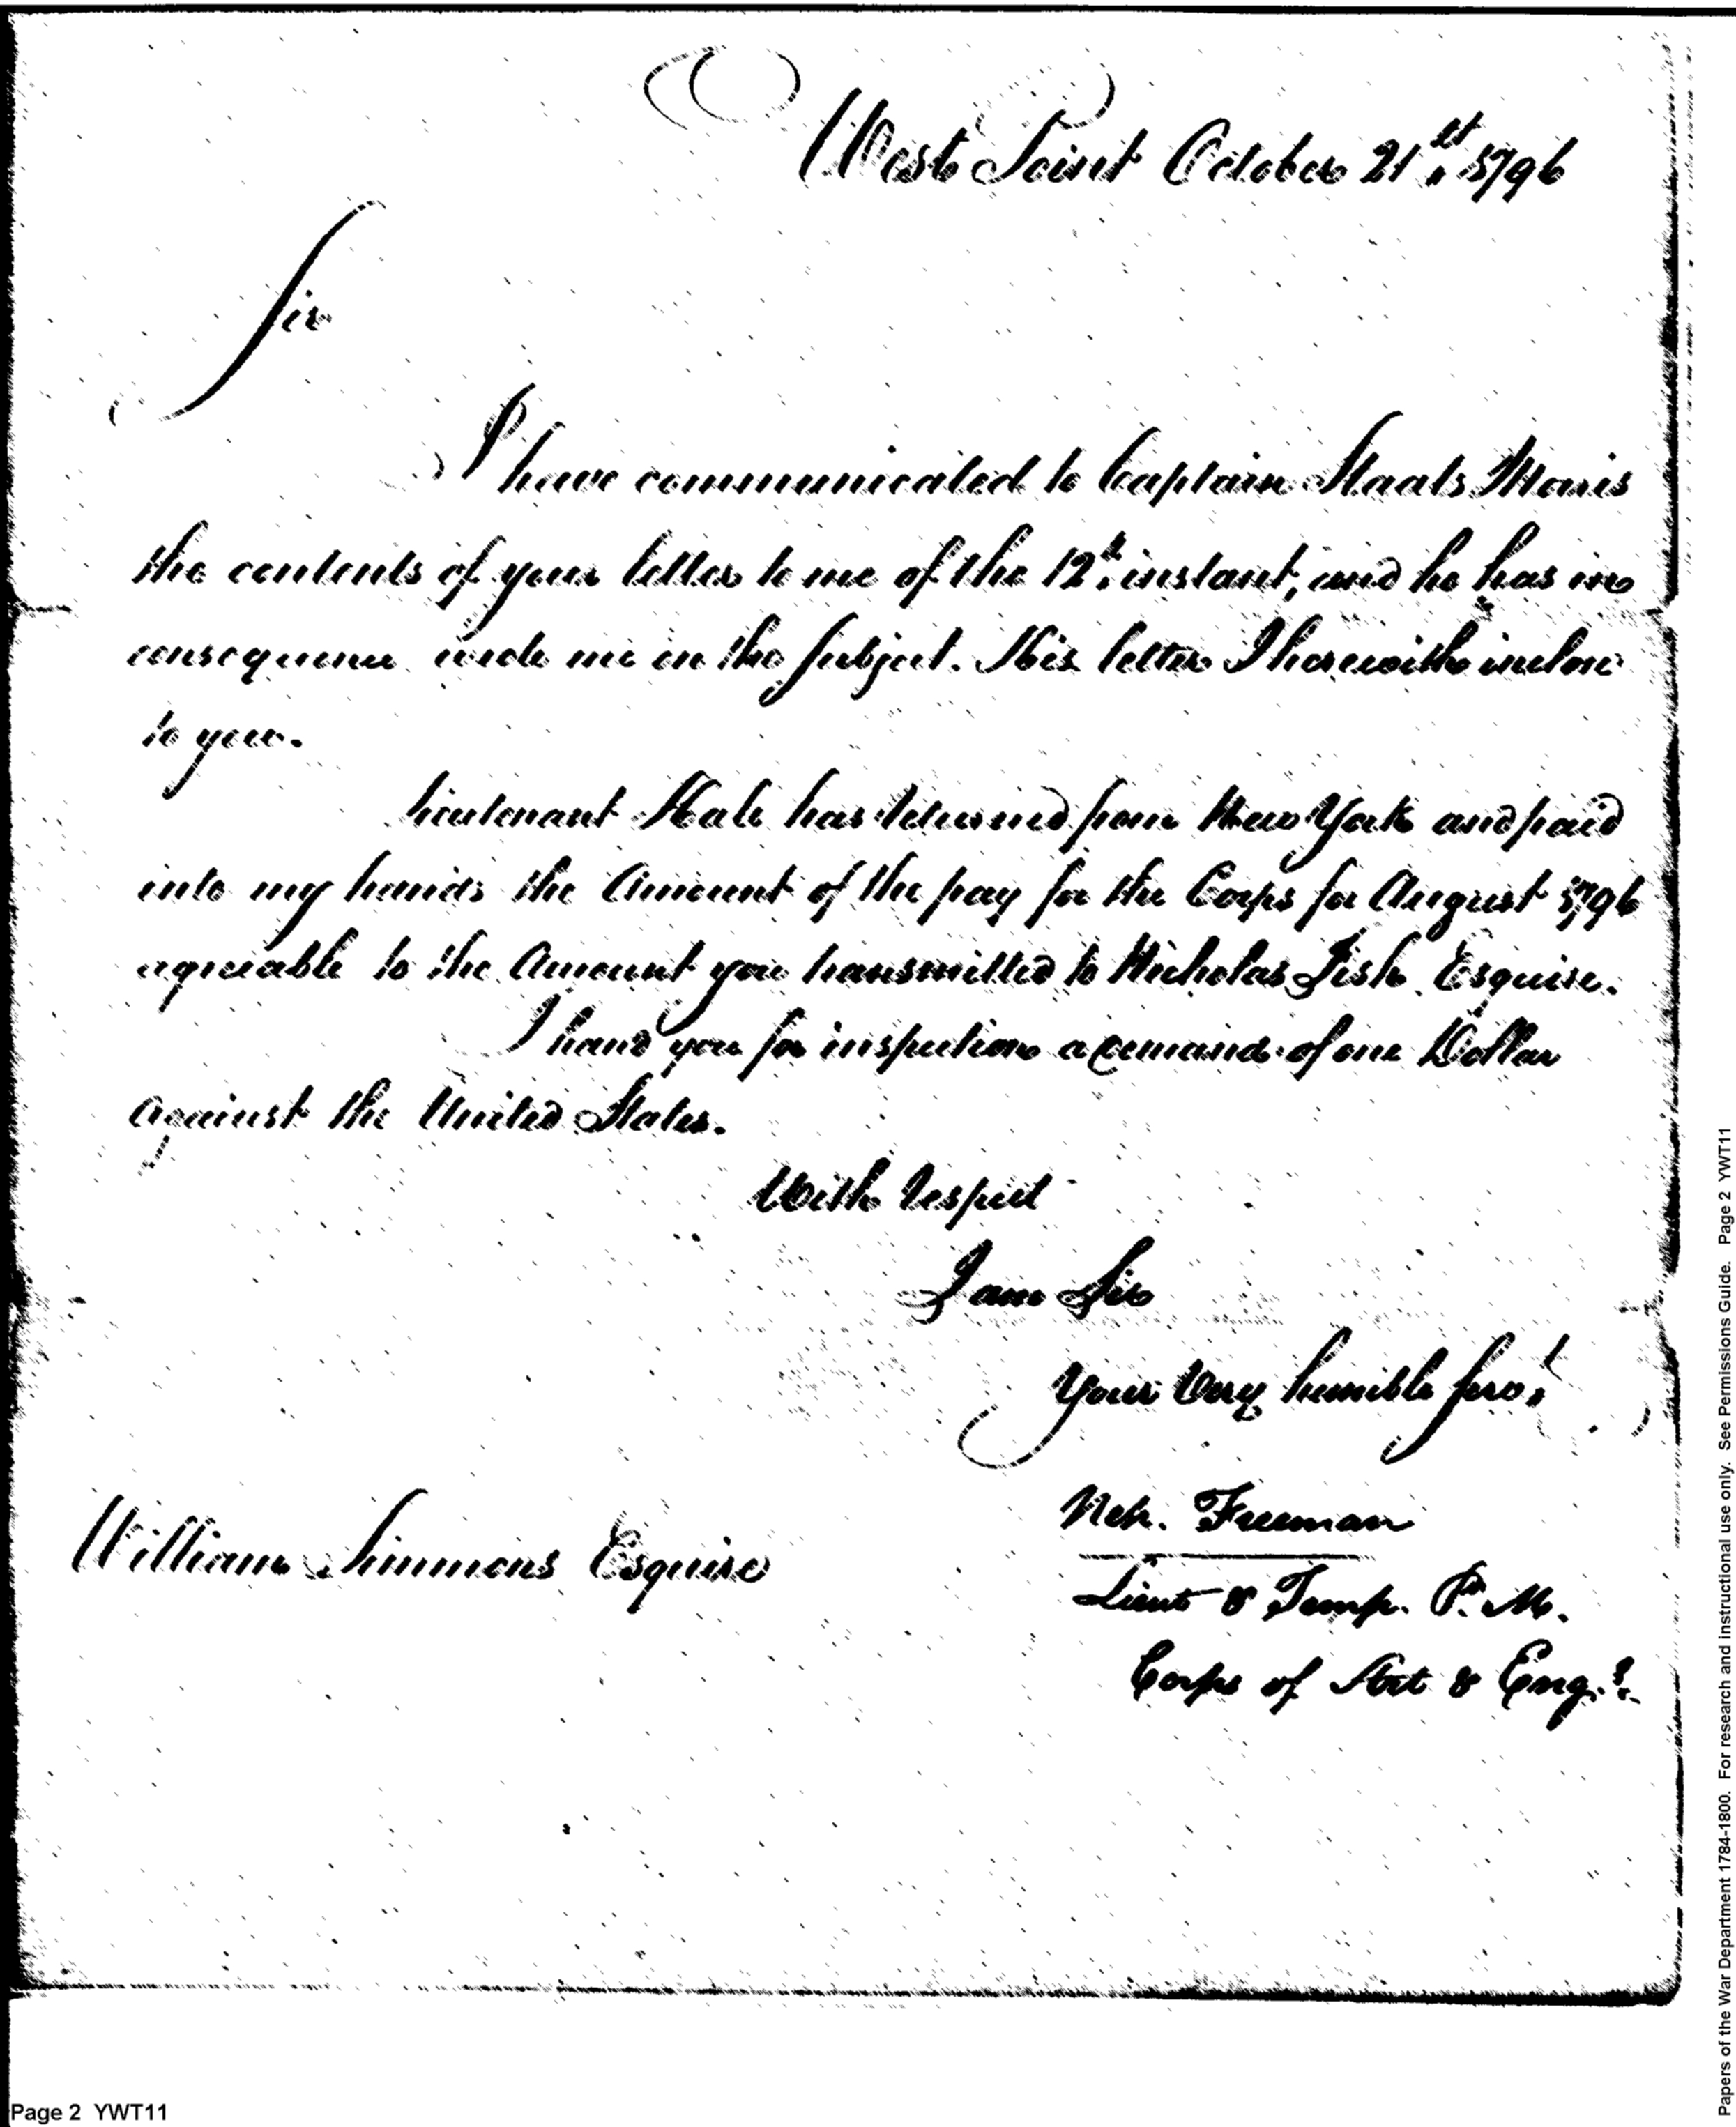 West Point October 21st. 1796
Sir
I have communicated to Captain Staats Morris
the contents of your letter to me of the 12th. instant, and he has in
consequence wrote me on the subject. His letter I herewith inclose
to you.
Lieutenant Hale has returned from New York and paid
into my hands the Amount of the pay for the Corps for August 1796
agreeable to the Amount you transmitted to Nicholas Fish Esquire.
I hand you for inspection a demand of one Dollar
against the United States.
With respect
I am Sir
Your Very humble servt.
Neh. Freeman
William Simmons Esquire
Lieut & Temp. P. M.
Corps of Art & Engrs.
Page 2 YWT11
Papers of the War Department 1784-1800. For research and instructional use only. See Permissions Guide. Page 2 YWT11